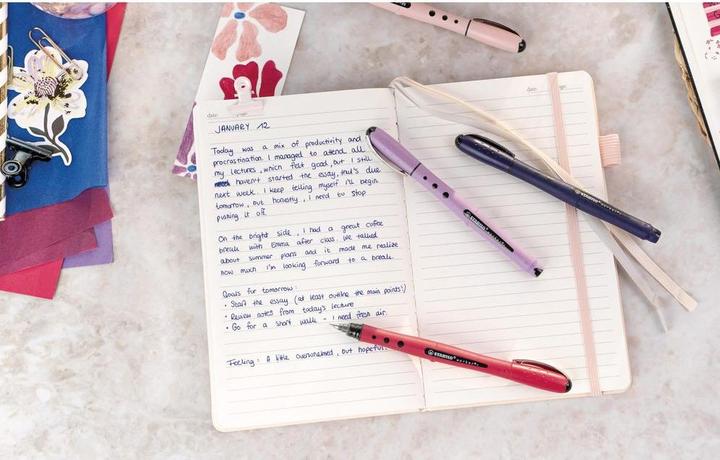 JANUARY 12
Today was a mix of productivity and
procrastination. I managed to attend all
my lectures, which felt good, but I still
haven't started the essay, that's due
next week. I keep telling myself I'll begin
tomorrow, but honestly, I need to stop
pushing it off.
On the bright side, I had a great coffee
break with Emma after class. We talked
about summer plans and it made me realize
how much I'm looking forward to a break.
Goals for tomorrow:
• Start the essay (at least outline the main points!)
• Review notes from today's lecture
• Go for a short walk - I need fresh air.
Feeling: A little overwhelmed, but hopeful.
STABILO
STABILO
STABILO